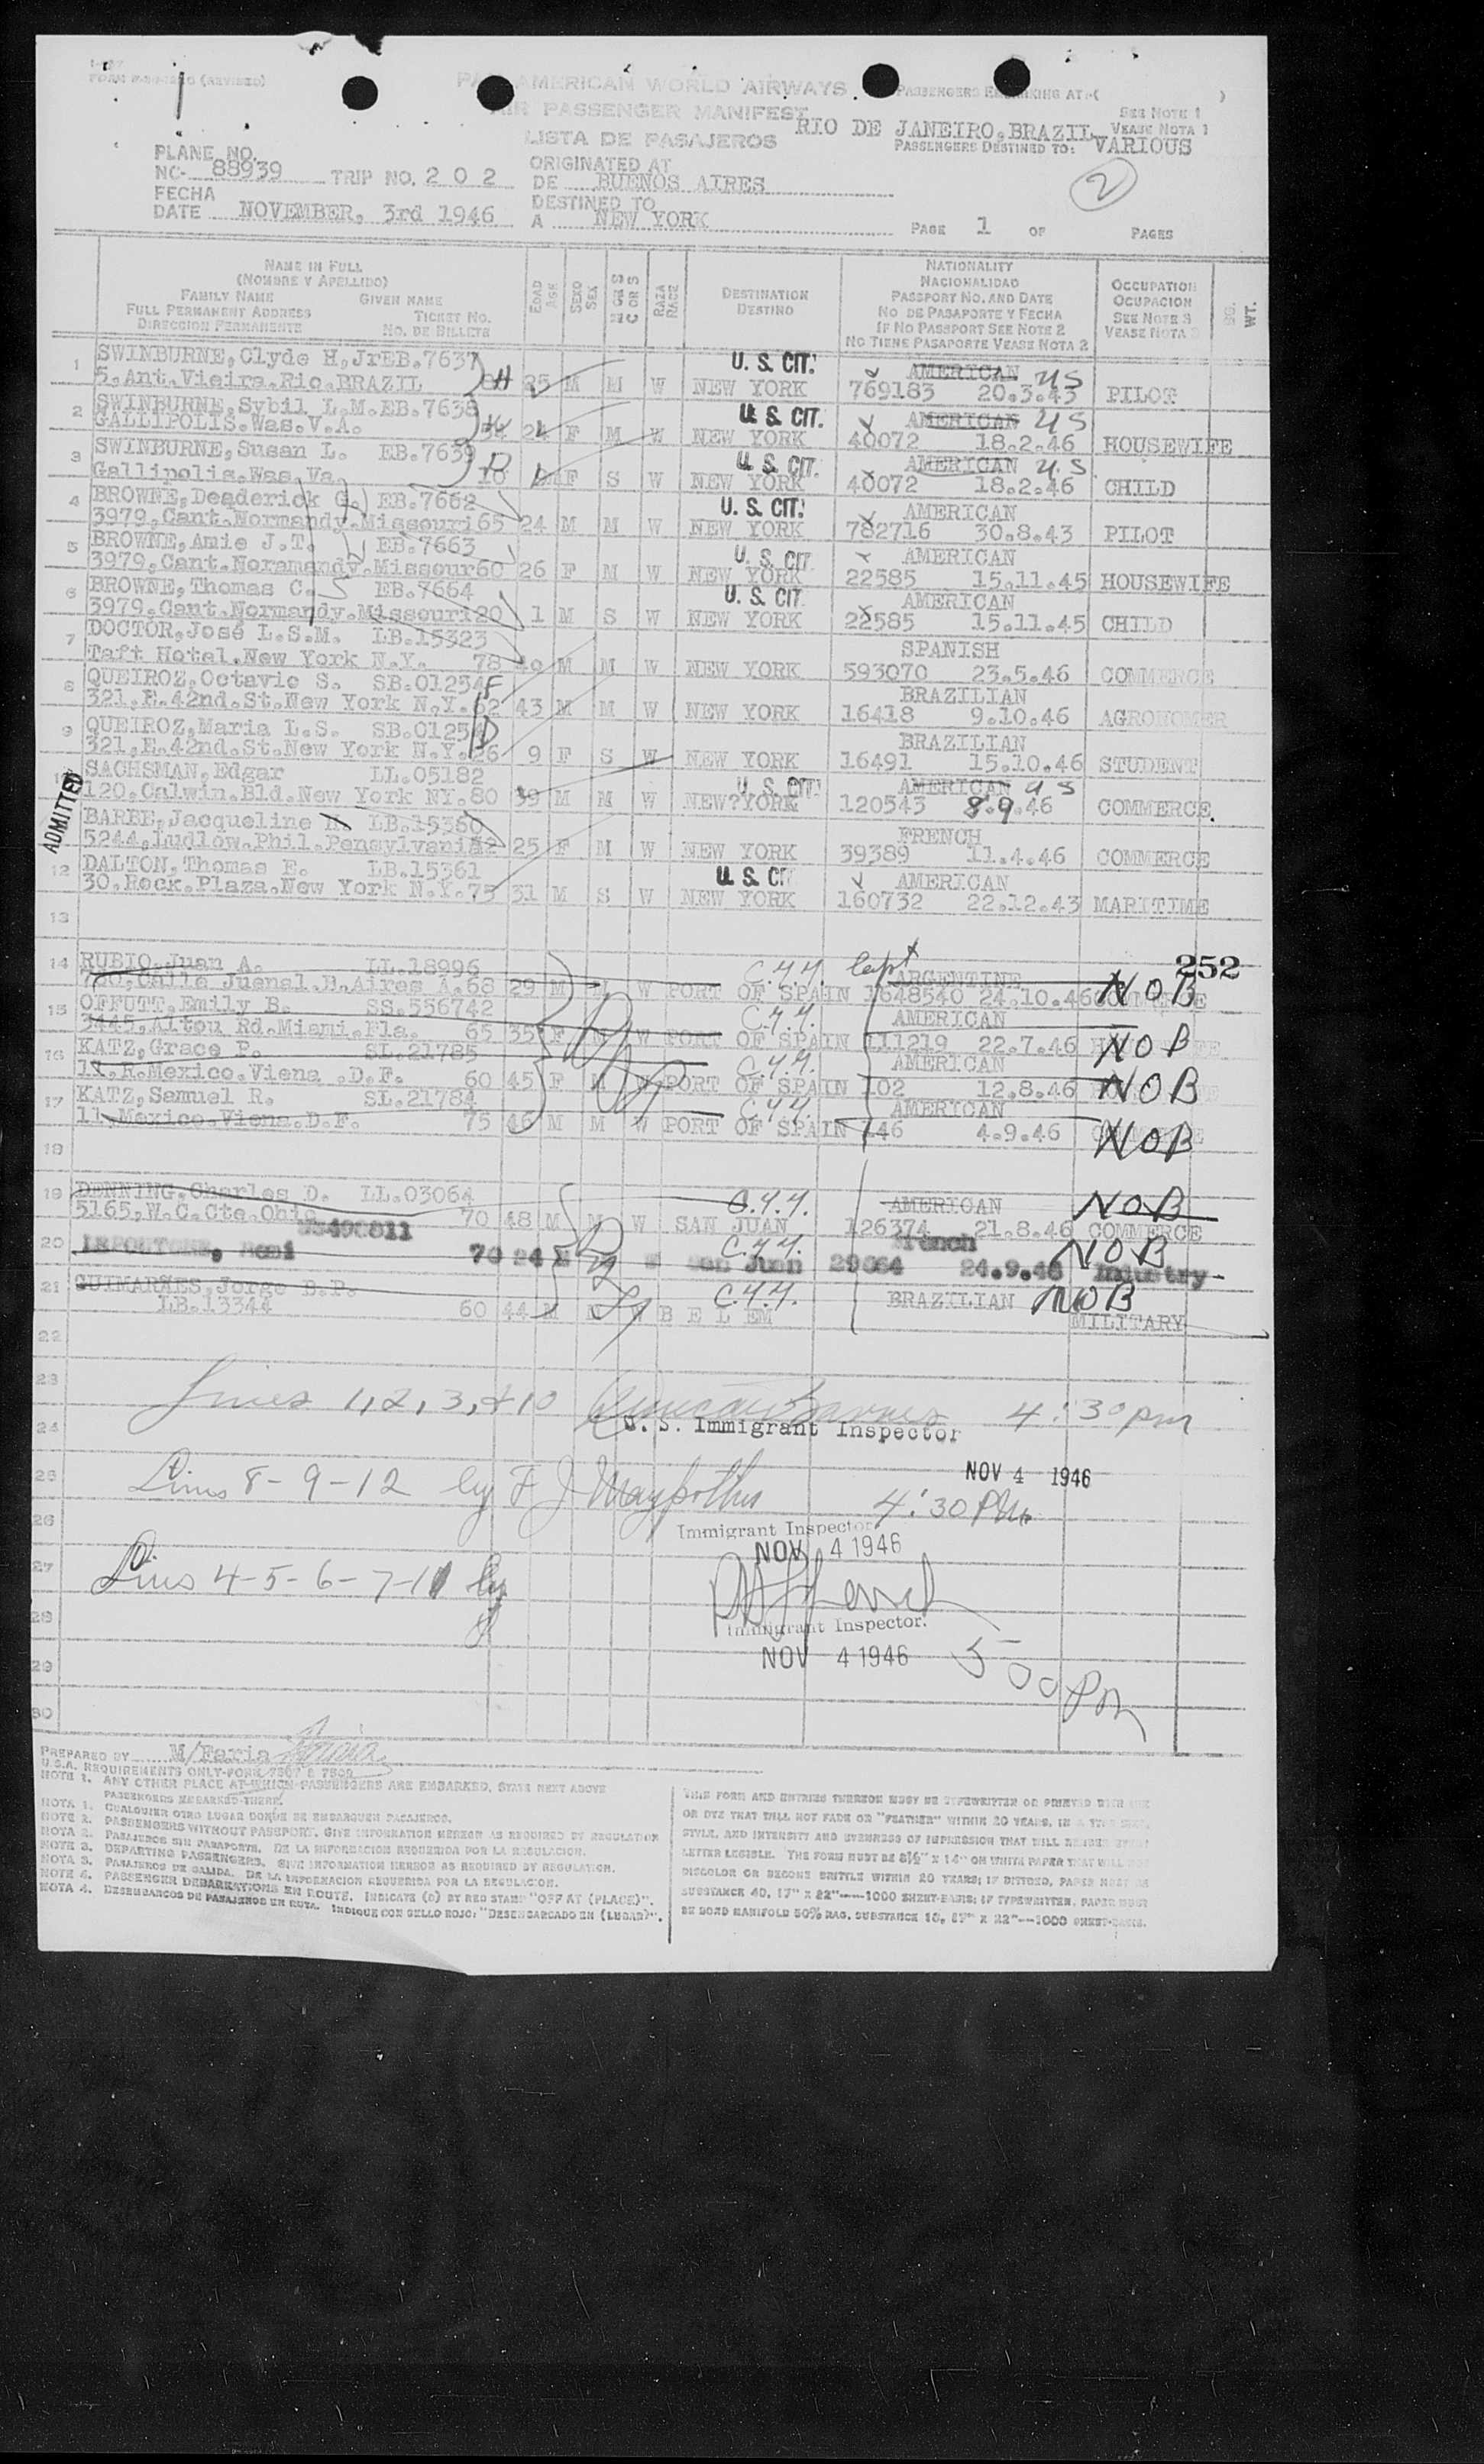 PAN AMERICAN WORLD AIRWAYS
AIR PASSENGER MANIFEST
LISTA DE PASAJEROS
PASSENGERS EMBARKING AT:( )
SEE NOTE 1
VEASE NOTA 1
RIO DE JANEIRO.BRAZIL
PASSENGERS DESTINED TO: VARIOUS
PLANE NO.
NC- 88939 TRIP NO. 2 0 2
ORIGINATED AT
DE BUENOS AIRES
2
FECHA
DATE NOVEMBER, 3rd 1946
DESTINED TO
A NEW YORK
PAGE 1 OF PAGES
NAME IN FULL
(NOMBRE Y APELLIDO)
FAMILY NAME GIVEN NAME
FULL PERMANENT ADDRESS TICKET NO.
DIRECCION PERMANENTE NO. DE BILLETE
EDAD AGE
SEXO SEX
RAZA RACE
DESTINATION
DESTINO
NATIONALITY
NACIONALIDAD
PASSPORT NO. AND DATE
NO DE PASAPORTE Y FECHA
IF NO PASSPORT SEE NOTE 2
NO TIENE PASAPORTE VEASE NOTA 2
OCCUPATION
OCUPACION
SEE NOTE 3
VEASE NOTA 3
WT.
1 SWINBURNE, Clyde H, Jr EB.7637 U. S. CIT. AMERICAN US
5, Ant.Vieira.Rio.BRAZIL 25 M M W NEW YORK 769183 20.3.43 PILOT
2 SWINBURNE, Sybil L.M. EB.7638 U. S. CIT. AMERICAN US
GALLIPOLIS.Was.V.A. 24 F M W NEW YORK 40072 18.2.46 HOUSEWIFE
3 SWINBURNE, Susan L. EB.7639 U. S. CIT. AMERICAN U.S
Gallipolis.Was.Va. F S W NEW YORK 40072 18.2.46 CHILD
4 BROWNE, Deaderick G. EB.7662 U. S. CIT. AMERICAN
3979,Cant.Normandy.Missouri 65 24 M M W NEW YORK 782716 30.8.43 PILOT
5 BROWNE, Amie J.T. EB.7663 U. S. CIT AMERICAN
3979,Cant.Noramandy.Missour 60 26 F M W NEW YORK 22585 15.11.45 HOUSEWIFE
6 BROWNE, Thomas C. EB.7664 U. S. CIT. AMERICAN
3979,Cant.Normandy.Missouri 20 1 M S W NEW YORK 22585 15.11.45 CHILD
7 DOCTOR, José L.S.M. LB.15323 SPANISH
Taft Hotel.New York N.Y. 78 M M W NEW YORK 593070 23.5.46 COMMERCE
8 QUEIROZ, Octavio S. SB.01254 BRAZILIAN
321,E.42nd.St.New York N.Y. 62 43 M M W NEW YORK 16418 9.10.46 AGRONOMER
9 QUEIROZ, Maria L.S. SB.0125 BRAZILIAN
321,E.42nd.St.New York N.Y. 26 9 F S W NEW YORK 16491 15.10.46 STUDENT
ADMITTED
SACHSMAN, Edgar LL.05182 U. S. CIT. AMERICAN US
120.Calwin.Bld.New York NY. 80 39 M M W NEW?YORK 120543 8.9.46 COMMERCE.
BARBE, Jacqueline LB.15360 FRENCH
5244,Ludlow.Phil.Pensylvania 25 F M W NEW YORK 39389 11.4.46 COMMERCE
12 DALTON, Thomas E. LB.15361 U. S. CIT AMERICAN
30.Rock.Plaza.New York N.Y. 75 31 M S W NEW YORK 160732 22.12.43 MARITIME
13
252
14 RUBIO, Juan A. LL.18996 C.Y.Y. ARGENTINE
Calle Juanal.B.Aires A.68 29 M M W PORT OF SPAIN 1648540 24.10.46 COMMERCE NOB
15 OFFUTT, Emily B. SS.556742 C.Y.Y. AMERICAN
3445,Alton Rd.Miami.Fla. 65 35 F M W PORT OF SPAIN 111219 22.7.46 NOB
16 KATZ, Grace P. SL.21785 C.Y.Y. AMERICAN
11.R.Mexico.Viena .D.F. 60 45 F M W PORT OF SPAIN 102 12.8.46 NOB
17 KATZ, Samuel R. SL.21784 C.Y.Y. AMERICAN
11.Mexico.Viena.D.F. 75 46 M M W PORT OF SPAIN 146 4.9.46 NOB
18
19 DENNING, Charles D. LL.03064 C.Y.Y. AMERICAN NOB
5165,W.C.Cte.Ohio 70 48 M M W SAN JUAN 126374 21.8.46 COMMERCE
20 C.Y.Y. French NOB
70 24 San Juan 29064 24.9.46 Industry
21 GUIMARÃES, Jorge B.P. C.Y.Y. BRAZILIAN NOB
LB.13344 60 44 M M W B E L EM MILITARY
22
23
Lines 1, 2, 3, & 10 4:30 pm
24 U. S. Immigrant Inspector
25 NOV 4 1946
Lines 8-9-12 by F J 4:30 PM
26 Immigrant Inspector
NOV 4 1946
27 Lines 4-5-6-7-11 by
28 Immigrant Inspector.
NOV 4 1946 5 00 PM
29
30
PREPARED BY M/Faria
U.S.A. REQUIREMENTS ONLY-FORM 7507 & 7509
NOTE 1. ANY OTHER PLACE AT WHICH PASSENGERS ARE EMBARKED, STATE NEXT ABOVE
PASSENGERS EMBARKED THERE.
NOTA 1. CUALQUIER OTRO LUGAR DONDE SE EMBARQUEN PASAJEROS.
NOTE 2. PASSENGERS WITHOUT PASSPORT. GIVE INFORMATION HEREON AS REQUIRED BY REGULATION
NOTA 2. PASAJEROS SIN PASAPORTE. DE LA INFORMACION REQUERIDA POR LA REGULACION.
NOTE 3. DEPARTING PASSENGERS. GIVE INFORMATION HEREON AS REQUIRED BY REGULATION.
NOTA 3. PASAJEROS DE SALIDA. DE LA INFORMACION REQUERIDA POR LA REGULACION.
NOTE 4. PASSENGER DEBARKATIONS EN ROUTE. INDICATE (0) BY RED STAMP "OFF AT (PLACE)".
NOTA 4. DESEMBARCOS DE PASAJEROS EN RUTA. INDIQUE CON SELLO ROJO: "DESEMBARCADO EN (LUGAR)".
THIS FORM AND ENTRIES THEREON MUST BE TYPEWRITTEN OR PRINTED WITH INK
OR DYE THAT WILL NOT FADE OR "FEATHER" WITHIN 20 YEARS, IN A TYPE SIZE,
STYLE, AND INTENSITY AND EVENNESS OF IMPRESSION THAT WILL RENDER EVERY
LETTER LEGIBLE. THE FORM MUST BE 8½" X 14" ON WHITE PAPER THAT WILL NOT
DISCOLOR OR BECOME BRITTLE WITHIN 20 YEARS; IF DITTOED, PAPER MUST BE
SUBSTANCE 40, 17" X 22"-----1000 SHEET-BASIS; IF TYPEWRITTEN, PAPER MUST
BE BOND MANIFOLD 50% RAG, SUBSTANCE 16, 17" X 22"---1000 SHEET-BASIS.